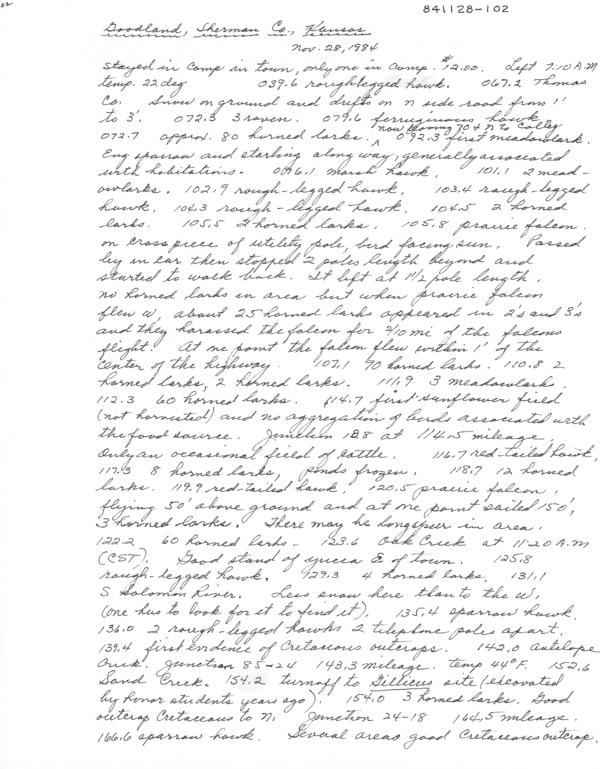 02
841128-102
Goodland, Sherman Co., Kansas
Nov. 28, 1984
Stayed in Camp in town, only one in Camp. $12.00. Left 7:10 A.M
temp. 22 deg 039.6 roughlegged hawk. 067.2 Thomas
Co. Snow on ground and drifts on N side road from 1'
to 3'. 072.3 3 raven. 079.6 ferruginous hawk
now going 70 + N to Colby
072.7 approx. 80 horned larks. 092.3 first meadowlark.
Eng sparrow and starling along way, generally associated
with habitations. 096.1 marsh hawk. 101.1 2 mead-
owlarks. 102.9 rough-legged hawk. 103.4 rough-legged
hawk. 104.3 rough-legged hawk. 104.5 2 horned
larks. 105.5 2 horned larks. 105.8 prairie falcon.
on crosspiece of utility pole, bird facing sun. Passed
by in car then stopped 2 poles length beyond and
started to walk back. It left at 1 1/2 pole length.
no horned larks in area but when prairie falcon
flew W, about 25 horned larks appeared in 2's and 3's
and they harassed the falcon for 2/10 mi of the falcons
flight. At one point the falcon flew within 1' of the
center of the highway. 107.1 70 horned larks. 110.8 2
horned larks, 2 horned larks. 111.9 3 meadowlarks.
112.3 60 horned larks. 114.7 first sunflower field
(not harvested) and no aggregation of birds associated with
the food source. Junction at 114.5 mileage.
Only an occasional field of cattle. 116.7 red-tailed hawk.
117.3 8 horned larks, ponds frozen. 118.7 12 horned
larks. 119.9 red-tailed hawk. 120.5 prairie falcon.
flying 50' above ground and at one point sailed 150',
3 horned larks. There may be longspur in area.
122.2 60 horned larks - 123.6 Oak Creek at 11:20 A.M
(CST). Good stand of yucca E of town. 125.8
rough-legged hawk. 129.3 4 horned larks. 131.1
S Solomon River. Less snow here than to the W,
(one has to look for it to find it). 135.4 sparrow hawk.
136.0 2 rough-legged hawks 2 telephone poles apart.
139.4 first evidence of Cretaceous outcrops. 142.0 antelope
Creek. Junction 85-24 148.3 mileage. temp 44°F. 152.6
Sand Creek. 154.2 turnoff to Gillicus site (excavated
by honor students years ago). 154.0 3 horned larks. Good
outcrop Cretaceous to N. Junction 24-18 164.5 mileage.
166.6 sparrow hawk. Several areas good Cretaceous outcrop.